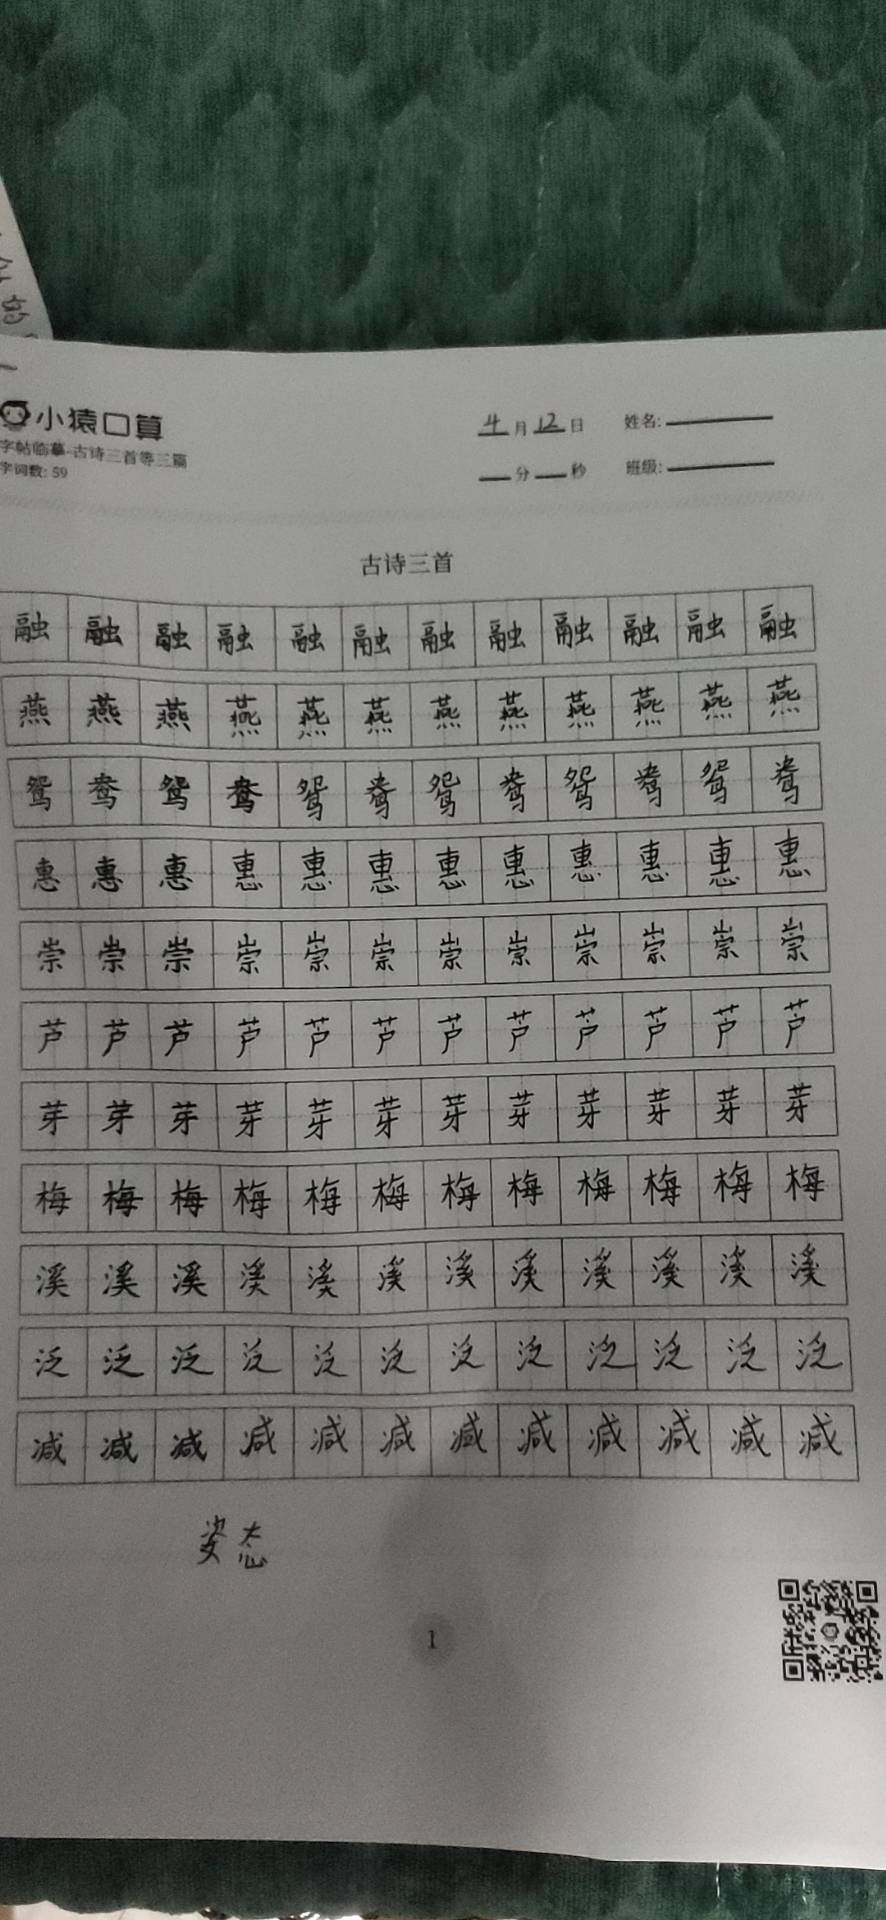 小猿口算
字帖临摹-古诗三首等三篇
字词数: 59
4月12日 姓名:
分 秒 班级:
古诗三首
融 融 融 融 融 融 融 融 融 融 融 融
燕 燕 燕 燕 燕 燕 燕 燕 燕 燕 燕 燕
鸳 鸯 鸳 鸯 鸳 鸯 鸳 鸯 鸳 鸯 鸳 鸯
惠 惠 惠 惠 惠 惠 惠 惠 惠 惠 惠 惠
崇 崇 崇 崇 崇 崇 崇 崇 崇 崇 崇 崇
芦 芦 芦 芦 芦 芦 芦 芦 芦 芦 芦 芦
芽 芽 芽 芽 芽 芽 芽 芽 芽 芽 芽 芽
梅 梅 梅 梅 梅 梅 梅 梅 梅 梅 梅 梅
溪 溪 溪 溪 溪 溪 溪 溪 溪 溪 溪 溪
泛 泛 泛 泛 泛 泛 泛 泛 泛 泛 泛 泛
减 减 减 减 减 减 减 减 减 减 减 减
姿态
1